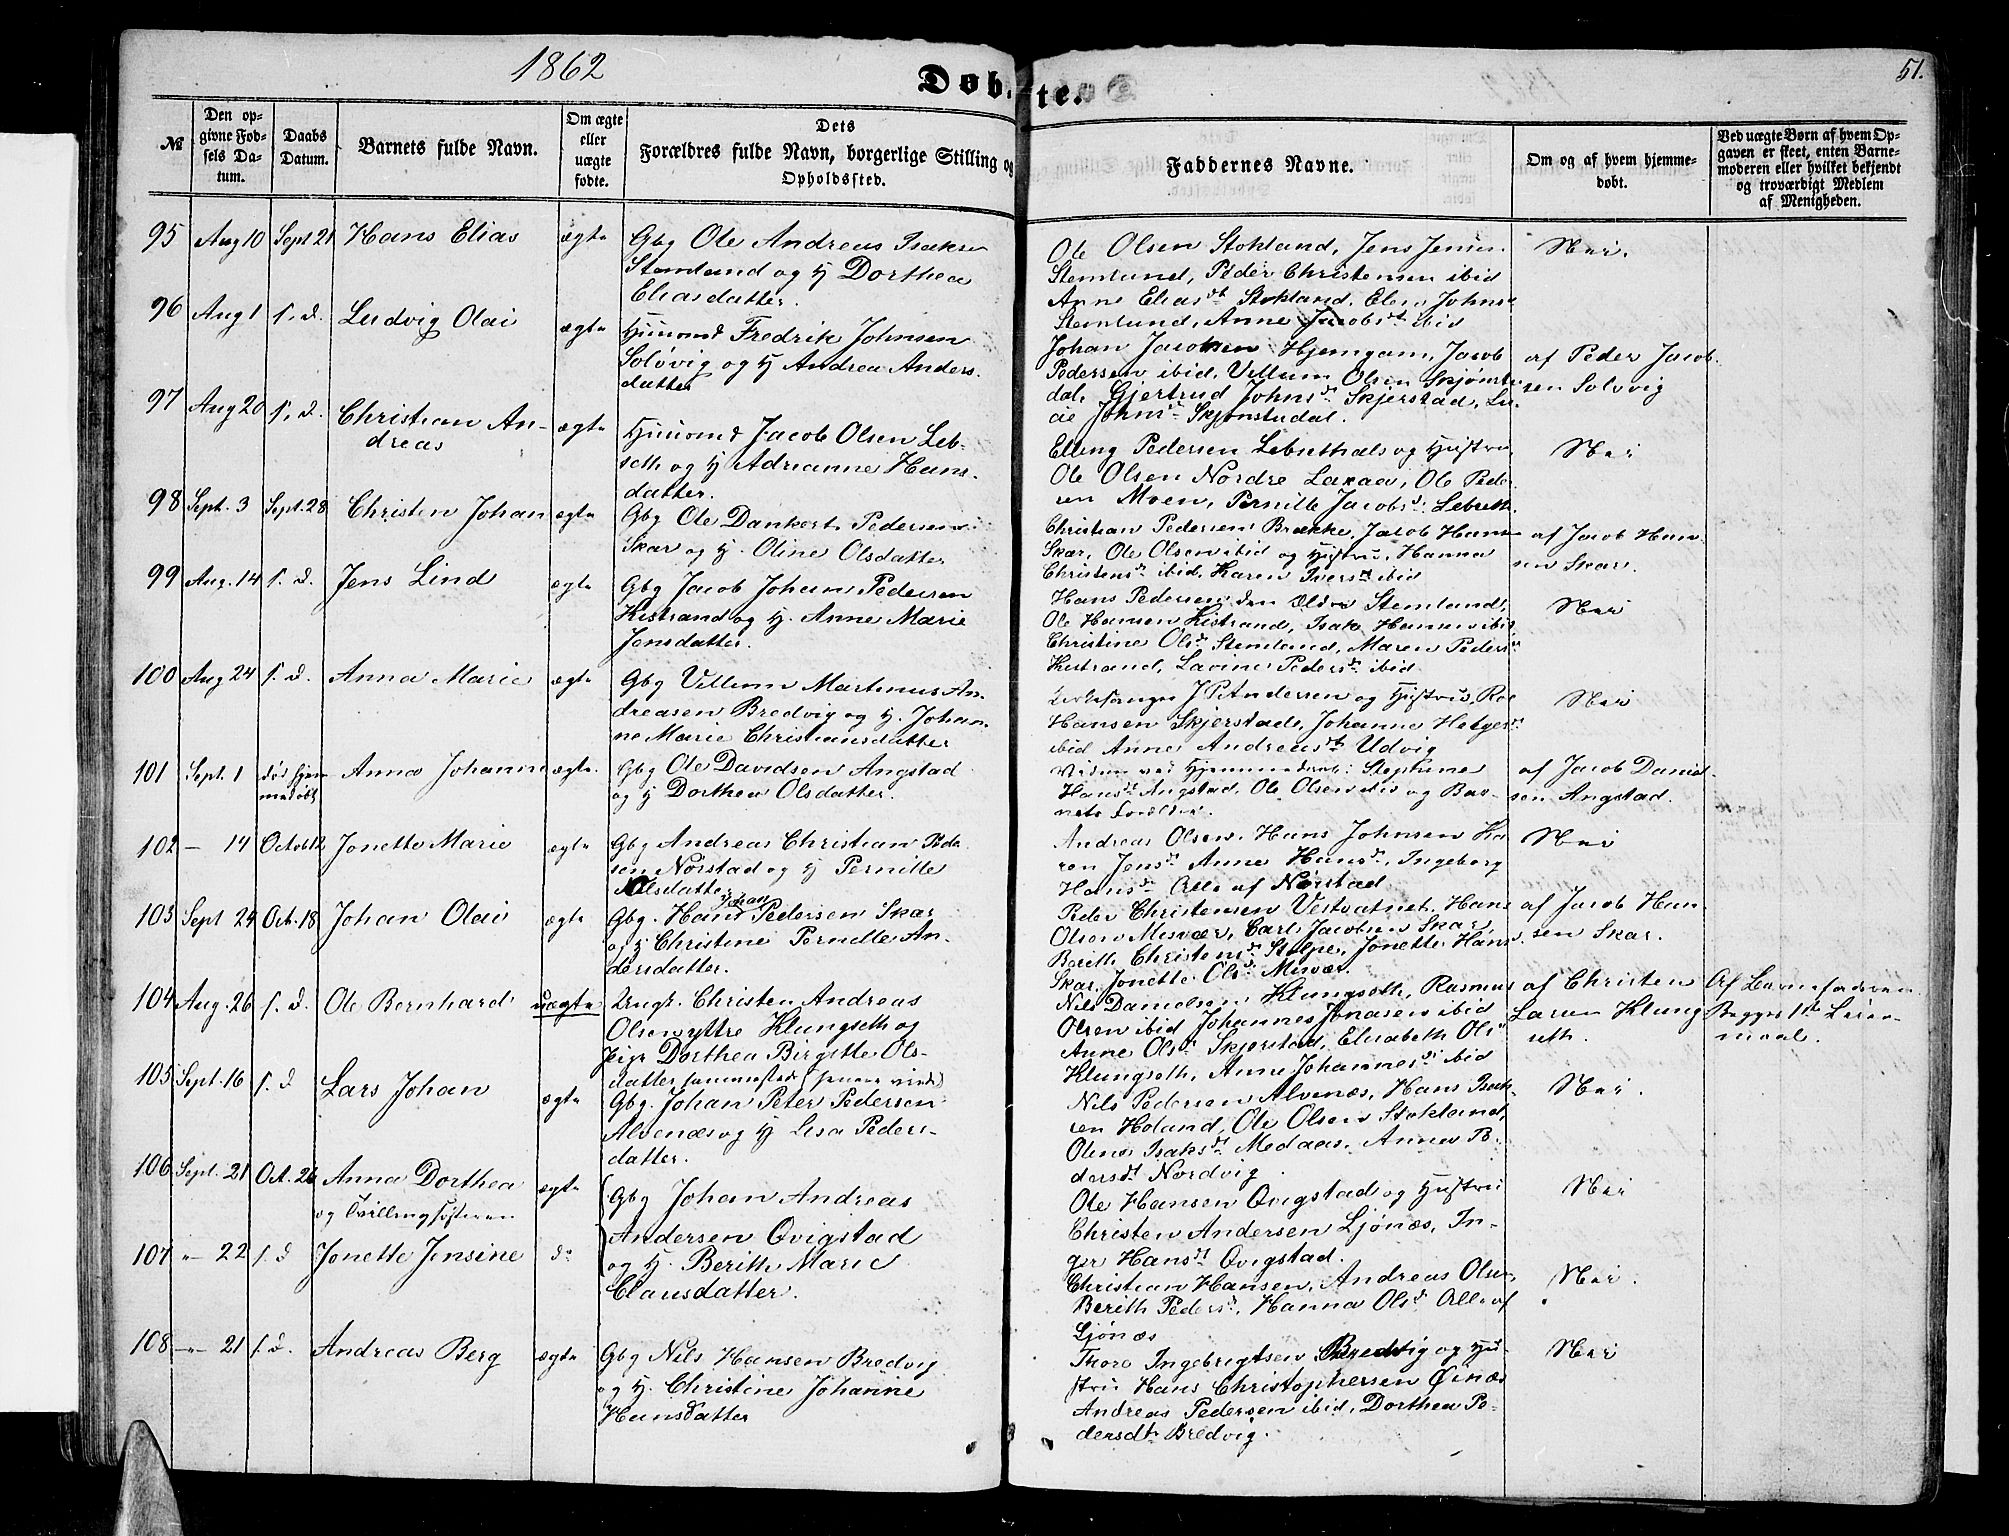 1862
51.
Døbte.
№
Den opgivne Fødsels Datum.
Daabs Datum.
Barnets fulde Navn.
Om ægte eller uægte fødte.
Dets Forældres fulde Navn, borgerlige Stilling og Opholdssted.
Faddernes Navne.
Om og af hvem hjemmedøbt.
Ved uægte Børn af hvem Opgaven er skeet, enten Barnemoderen eller hvilket bekjendt og troværdigt Medlem af Menigheden.
95 Aug 10 Sept 21 Hans Elias ægte
Gbg Ole Andreas Isaksen
Stemland og H Dorthea
Eliasdatter.
Ole Olsen Stokland, Jens Jensen
Stemlund, Peder Christensen ibid
Anne Eliasdt Stokland, Elen Johns
Stemlund, Anne Jacobsdt ibid
Nei.
96 Aug 1 s. d. Ludvig Olai ægte
Huusmd Fredrik Johnsen
Soløvig og H Andrea Anders
datter
Johan Jacobsen Hjemgam, Jacob
Pedersen ibid, Villum Olsen Skjønstu
dal, Gjertrud Johnsdt Skjerstad, Lu
cie Johnsdt Skjønstudal.
af Peder Jacob
sen Solvvig
97 Aug 20 s. d. Christian An-
dreas ægte
Huusmd Jacob Olsen Leb-
seth og H Adrianne Hans
datter.
Elling Pedersen Lebsethals og Hustru
Ole Olsen Nordre Laxaa, Ole Peder
sen Moen, Pernille Jacobsd. Lebseth.
Nei
98 Sept. 3 Sept. 28 Christen Johan ægte
Gbg Ole Dankert Pedersen
Skar og H. Oline Olsdatter
Christian Pedersen Brække, Jacob Hansen
Skar, Ole Olsen ibid og Hustru, Hanna
Christensdt ibid, Karen Iversdt ibid
af Jacob Han
sen Skar.
99 Aug. 14 s. d. Jens Lind ægte
Gbg Jacob Johan Pedersen
Kistrand og H. Anne Marie
Jensdatter.
Hans Pedersen den Ældre Stemland,
Ole Hansen Kistrand, Isak Hansen ibid
Christine Olsdt Stemland, Maren Peders
Kistrand, Lavine Pedersdt ibid
Nei
100 Aug 24 s. d. Anna Marie ægte
Gbg Villum Martinus An-
dreasen Bredvig og H. Johan-
ne Marie Christiansdatter
Kirkesanger J P Andersen og Hustru,
Hansen Skjerstad, Johanna
ibid Anne Andreasdt Udvig
Nei
101 Sept. 1 død hjem
medøbt Anna Johanne ægte.
Gbg Ole Davidsen Angstad
og H Dorthea Olsdatter.
Vidner ved Hjemmedaab: Stephine
Hansdt Angstad, Ole Olsen ibid og Bar-
nets Forældre.
af Jacob Daniel
sen Angstad.
102 - 14 Octob 12 Jonette Marie ægte
Gbg Andreas Christian Peder
sen Nørstad og H Pernille
Nilsdatter
Andreas Olsen, Hans Johnsen Ka
ren Jensdt Anne Hansdt, Ingeborg
Hansdt Alle af Nørstad
Nei
103 Sept 24 Oct. 18 Johan Olai ægte
Gbg. Hans Johan Pedersen Skar
og H Christine Pernille An-
dersdatter.
Peder Christensen Vestvatnet, Hans
Olsen Misvær, Carl Jacobsen Skar,
Berith Christensdt Stolpe, Jonette Hans
Skar, Jonette Olsd. Misvær.
af Jacob Han
sen Skar.
104 Aug. 26 s. d. Ole Bernhard uægte
Ungk. Christen Andreas
Olsen yttre Klungseth og
Pige Dorthea Birgitte Ols-
datter sammested
Nils Danielsen Klungseth, Rasmus
Olsen ibid Johannes Jonasen ibid
Anne Olsdt Skjerstad, Elisabeth Ols
Klungseth, Anne Johannesdt ibid
af Christen
Larsen Klung
seth.
Af Barnefaderen.
Begges 1ste Leier-
maal.
105 Sept. 16 s. d Lars Johan ægte
Gbg. Johan Peter Pedersen
Alvenæs og H Lisa Peders-
datter.
Nils Pedersen Alvenæs, Hans Isak-
sen Holand, Ole Olsen Stokland
Oline Isaksdt Medaas, Anne Pe
dersdt Nordvig
Nei.
106 Sept. 21 Oct. 26 Anna Dorthea ægte
og Tvillingsøsteren
107 „ 22 s. d Jonette Jensine do
Gbg Johan Andreas
Andersen Qvigstad
og H. Berith Marie
Clausdatter.
Ole Hansen Qvigstad og Hustru
Christen Andersen Ljønæs, In-
ger Hansdt Qvigstad.
Nei
Christian Hansen, Andreas Olsen,
Berith Pedersd, Hanna Olsd Alle af
Ljønæs
Nei.
108 -„- 21 s. d. Andreas Berg ægte
Gbg Nils Hansen Bredvig
og H. Christine Johanne
Hansdatter
Thore Ingebrigtsen Bredvig og Hu-
stru Hans Christophersen Øinæs
Andreas Pedersen ibid, Dorthea Pe-
dersdt. Bredvig.
Nei